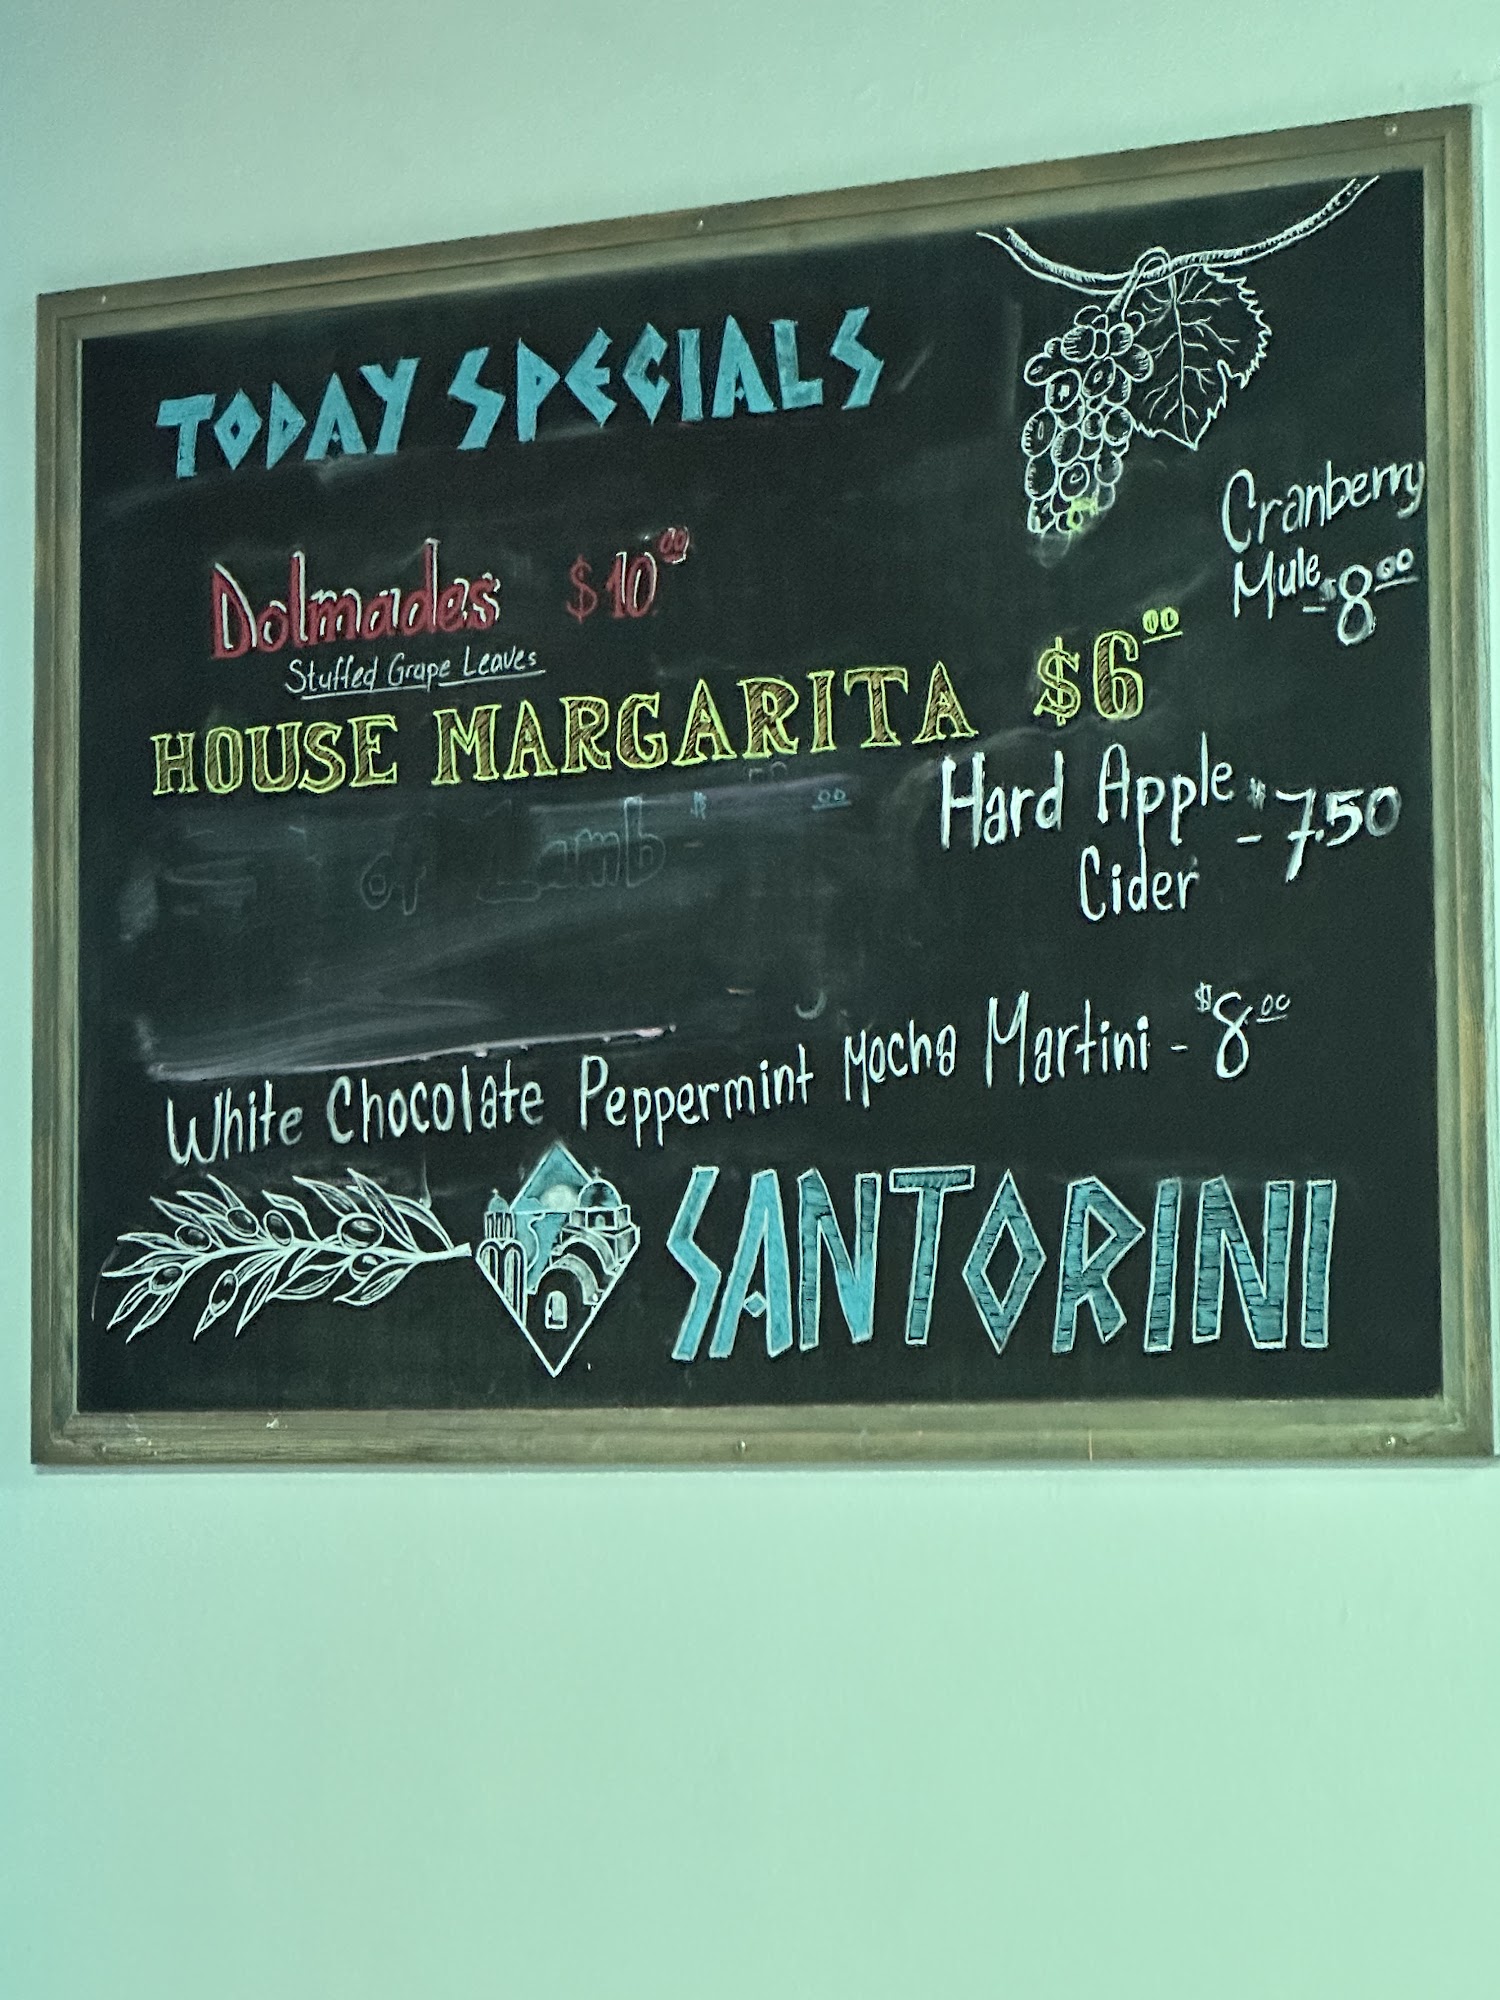 TODAY SPECIALS
Dolmades $10.00
Stuffed Grape Leaves
Cranberry
Mule - $8.00
HOUSE MARGARITA $6.00
of Lamb
Hard Apple - $7.50
Cider
White Chocolate Peppermint Mocha Martini - $8.00
SANTORINI